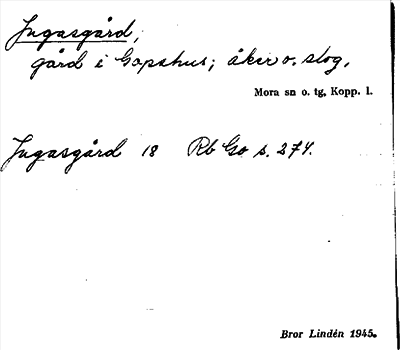 Jugasgård,
gård i Gopshus; åker o. slog.
Mora sn o. tg, Kopp. l.
Jugasgård 18 Rb Go s. 274.
Bror Lindén 1945.